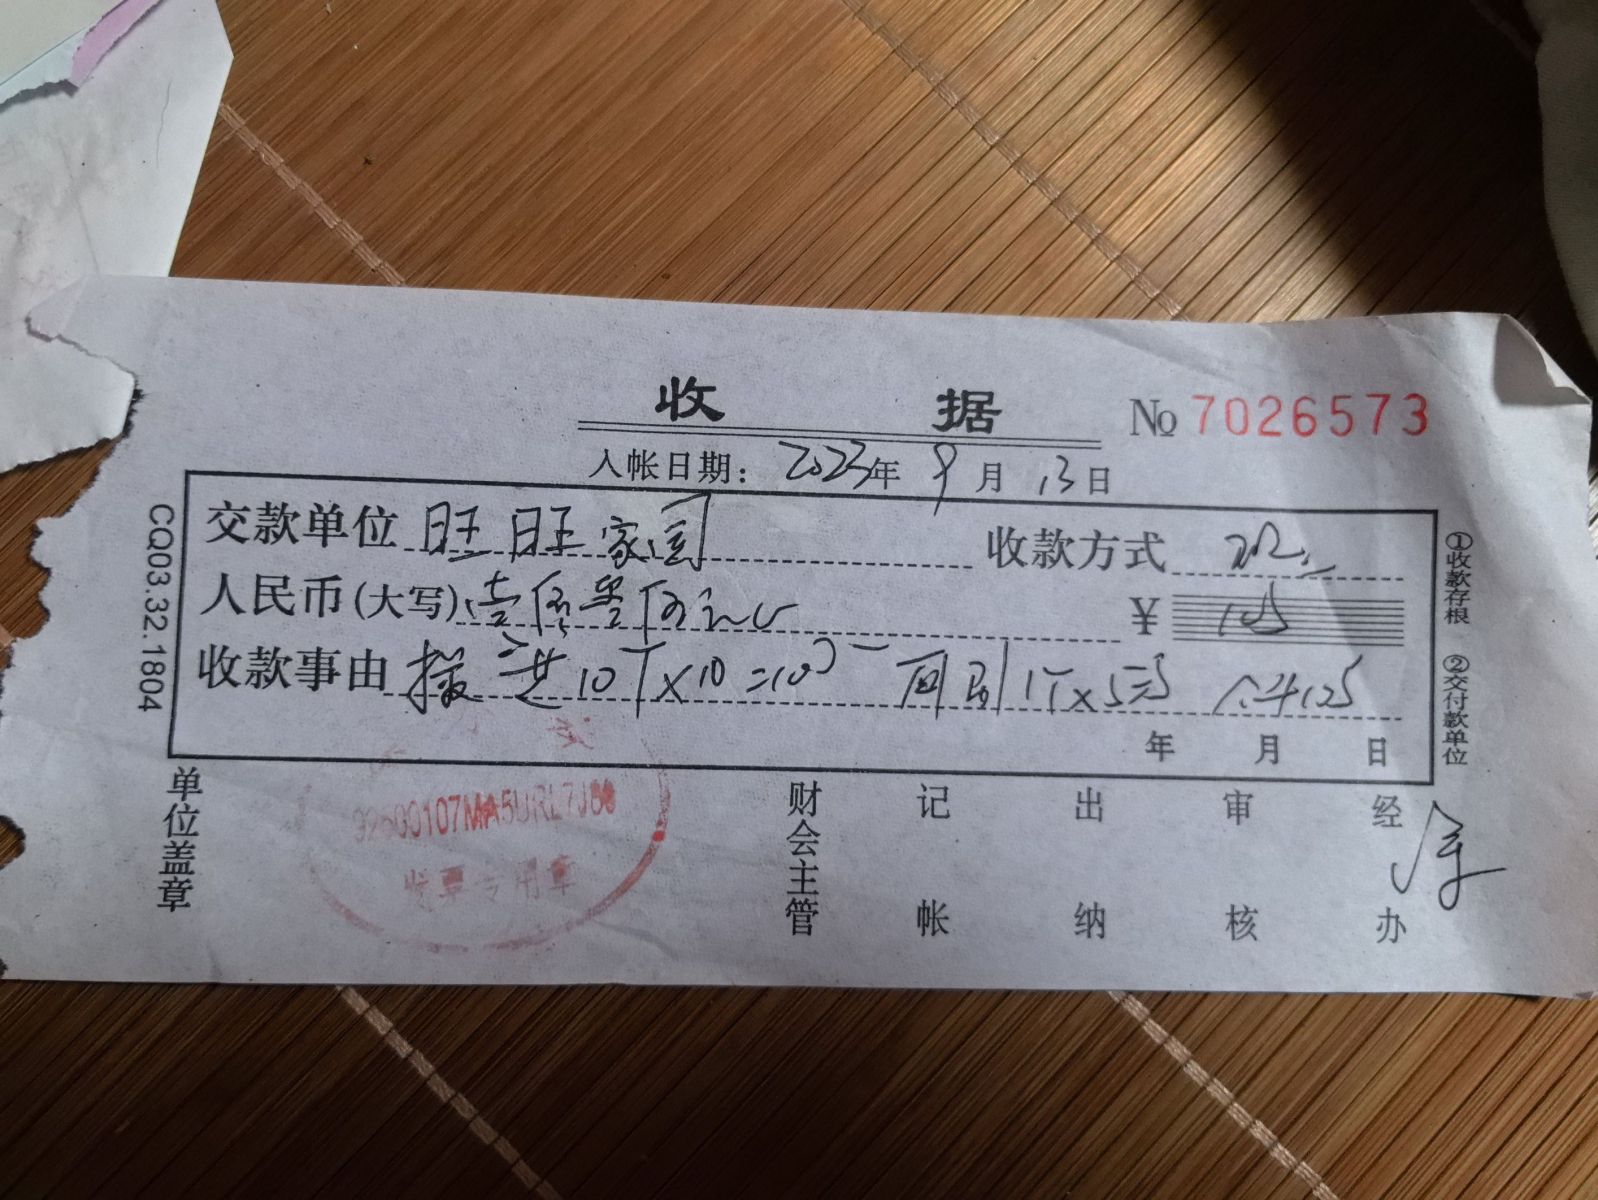 收 据
№ 7026573
入帐日期: 2023年 9月 13日
交款单位 旺旺家园 收款方式
人民币(大写) 壹佰零伍元 ¥ 105
收款事由 10个×10=100 1个×5元 105
年 月 日
CQ03.32.1804
①收款存根 ②交付款单位
单位盖章
发票专用章
财会主管
记帐
出纳
审核
经办